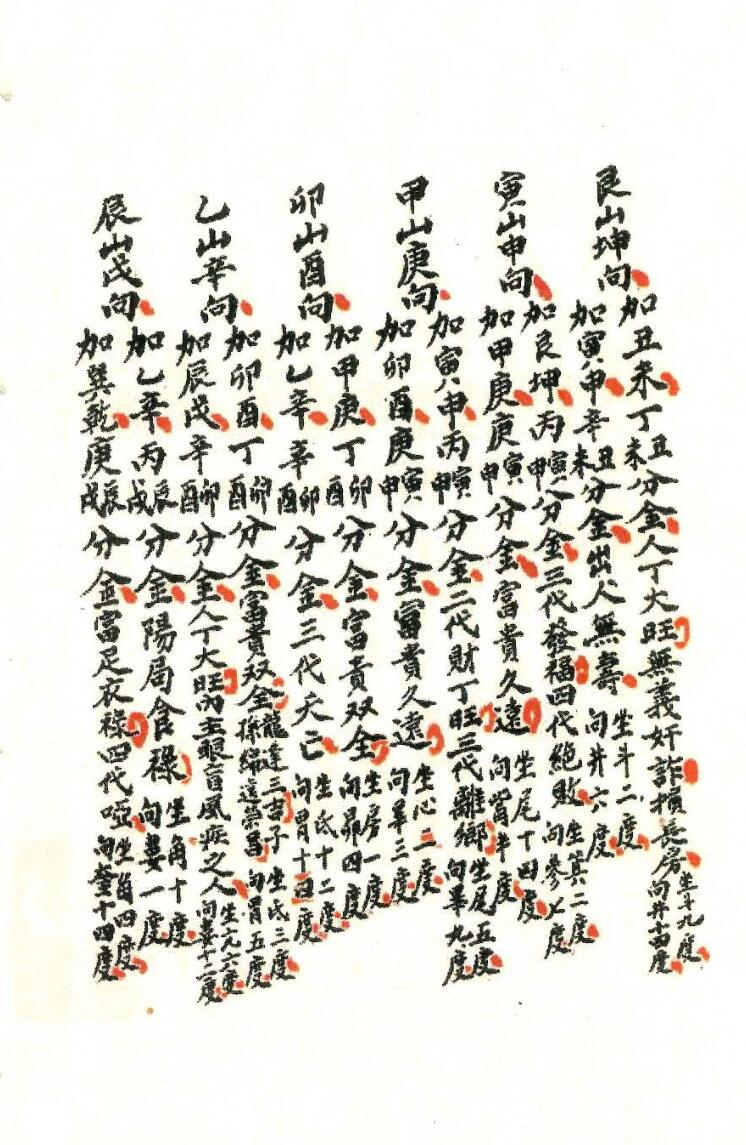 艮山坤向
加丑未丁丑未分金人丁大旺無義奸詐損長房坐斗九度向井十四度
加寅申辛丑未分金出人無壽坐斗二度向井六度
寅山申向
加艮坤丙寅申分金三代發福四代絕敗坐箕二度向參七度
加甲庚庚寅申分金富貴久遠坐尾十四度向觜半度
甲山庚向
加寅申丙寅申分金二代財丁旺三代離鄉坐尾五度向畢九度
加卯酉庚寅申分金富貴久遠坐心二度向畢三度
卯山酉向
加甲庚丁卯酉分金富貴双全坐房一度向昴四度
加乙辛辛卯酉分金三代夭亡坐氐十二度向胃十四度
乙山辛向
加卯酉丁卯酉分金富貴双全龍達三吉子孫綿遠荣昌坐氐三度向胃五度
加辰戌辛卯酉分金人丁大旺内主眼盲風疾之人坐亢六度向婁十二度
辰山戌向
加乙辛丙辰戌分金陽局食祿坐角十度向婁一度
加巽乾庚辰戌分金富足衣祿四代啞坐角四度向奎十四度